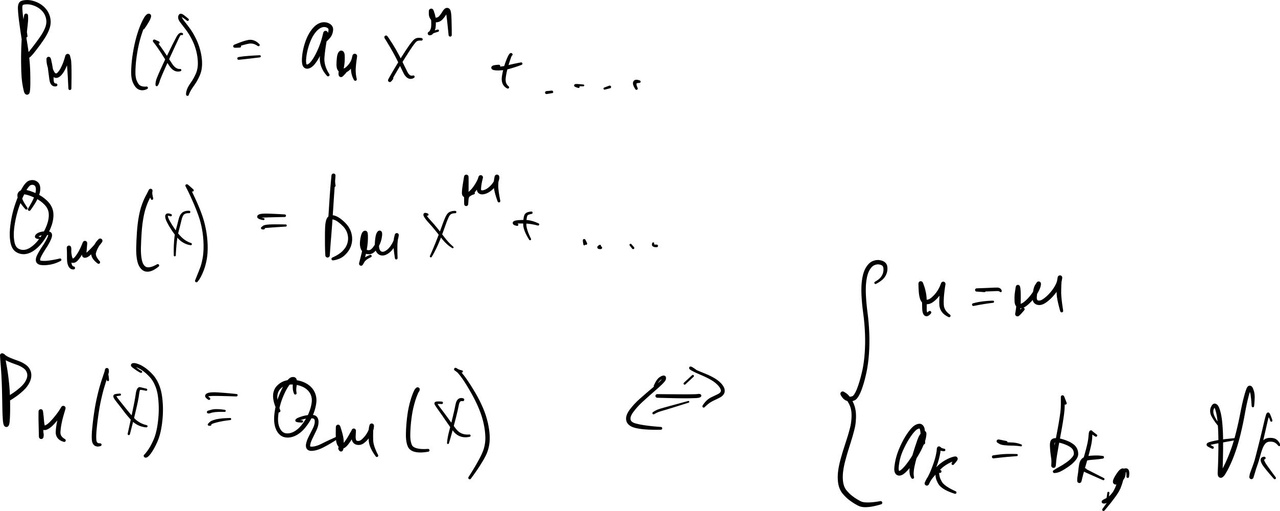 Pₙ (x) = aₙ xⁿ + ....
Qₘ (x) = bₘ xᵐ + ....
Pₙ(x) ≡ Qₘ(x) ⇔ { n = m
aₖ = bₖ, ∀k